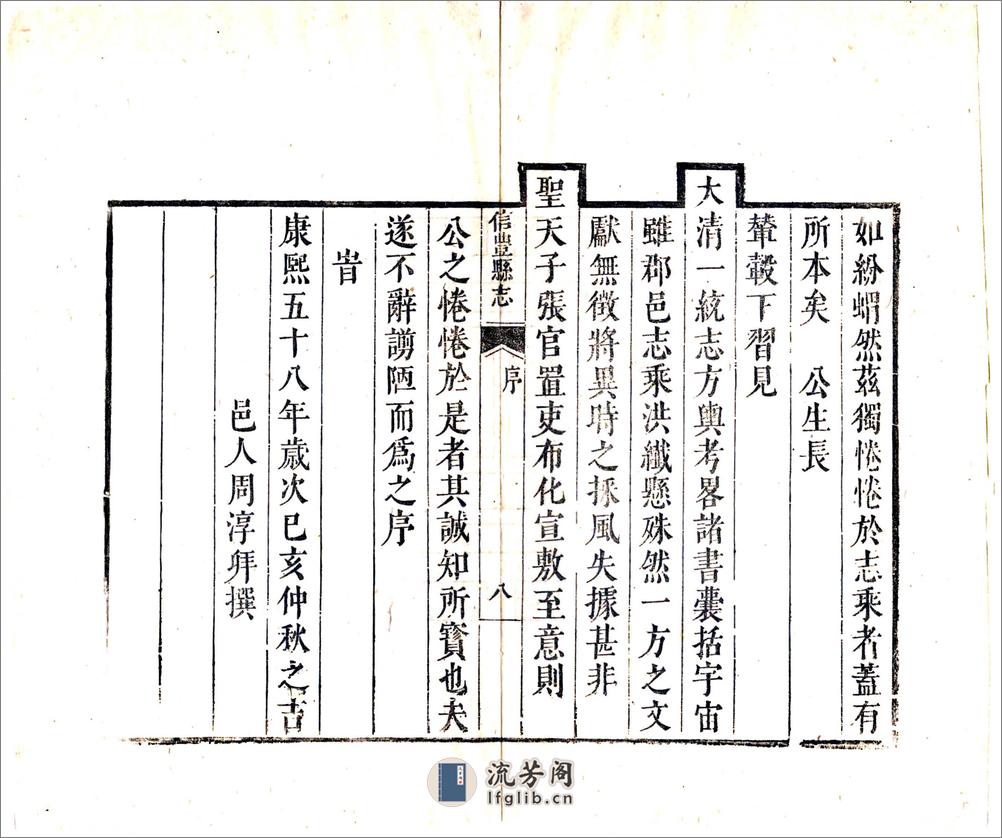 如紛蝟然茲獨惓惓於志乘者蓋有
所本矣　公生長
輦轂下習見
大清一統志方輿考畧諸書囊括宇宙
雖郡邑志乘洪纖懸殊然一方之文
獻無徵將異時之採風失據甚非
聖天子張官置吏布化宣敷至意則
信豐縣志
序
八
公之惓惓於是者其誠知所寳也夫
遂不辭謭陋而爲之序
旹
康熙五十八年歲次已亥仲秋之吉
邑人周淳拜撰
流芳阁
lfglib.cn